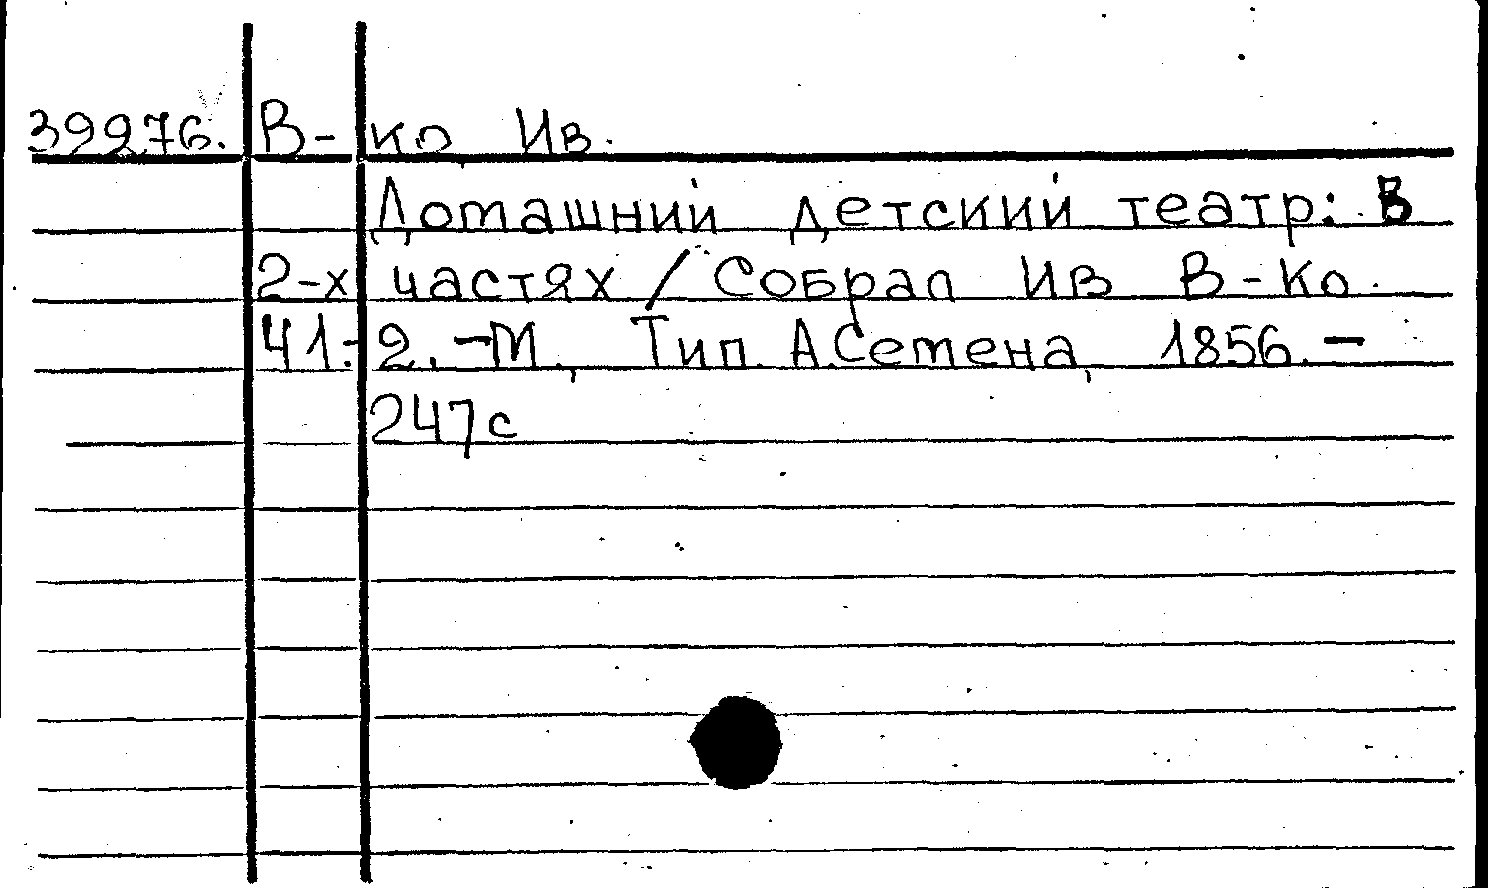 39276. В-ко Ив.
Домашний детский театр: В
2-х частях / Собрал Ив В-ко.
Ч1-2. - М., Тип. А.Семена, 1856. -
247с